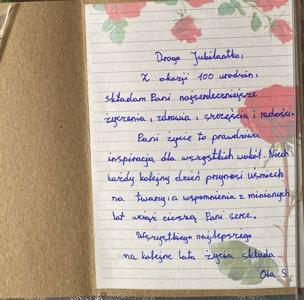 Droga Jubilatko,
Z okazji 100 urodzin,
składam Pani najserdeczniejsze
życzenia, zdrowia, szczęścia i radości.
Pani życie to prawdziwa
inspiracja dla wszystkich wokół. Niech
każdy kolejny dzień przynosi uśmiech
na twarzy, a wspomnienia z minionych
lat wciąż cieszą Pani serce.
Wszystkiego najlepszego
na kolejne lata życia składa
Ola S.